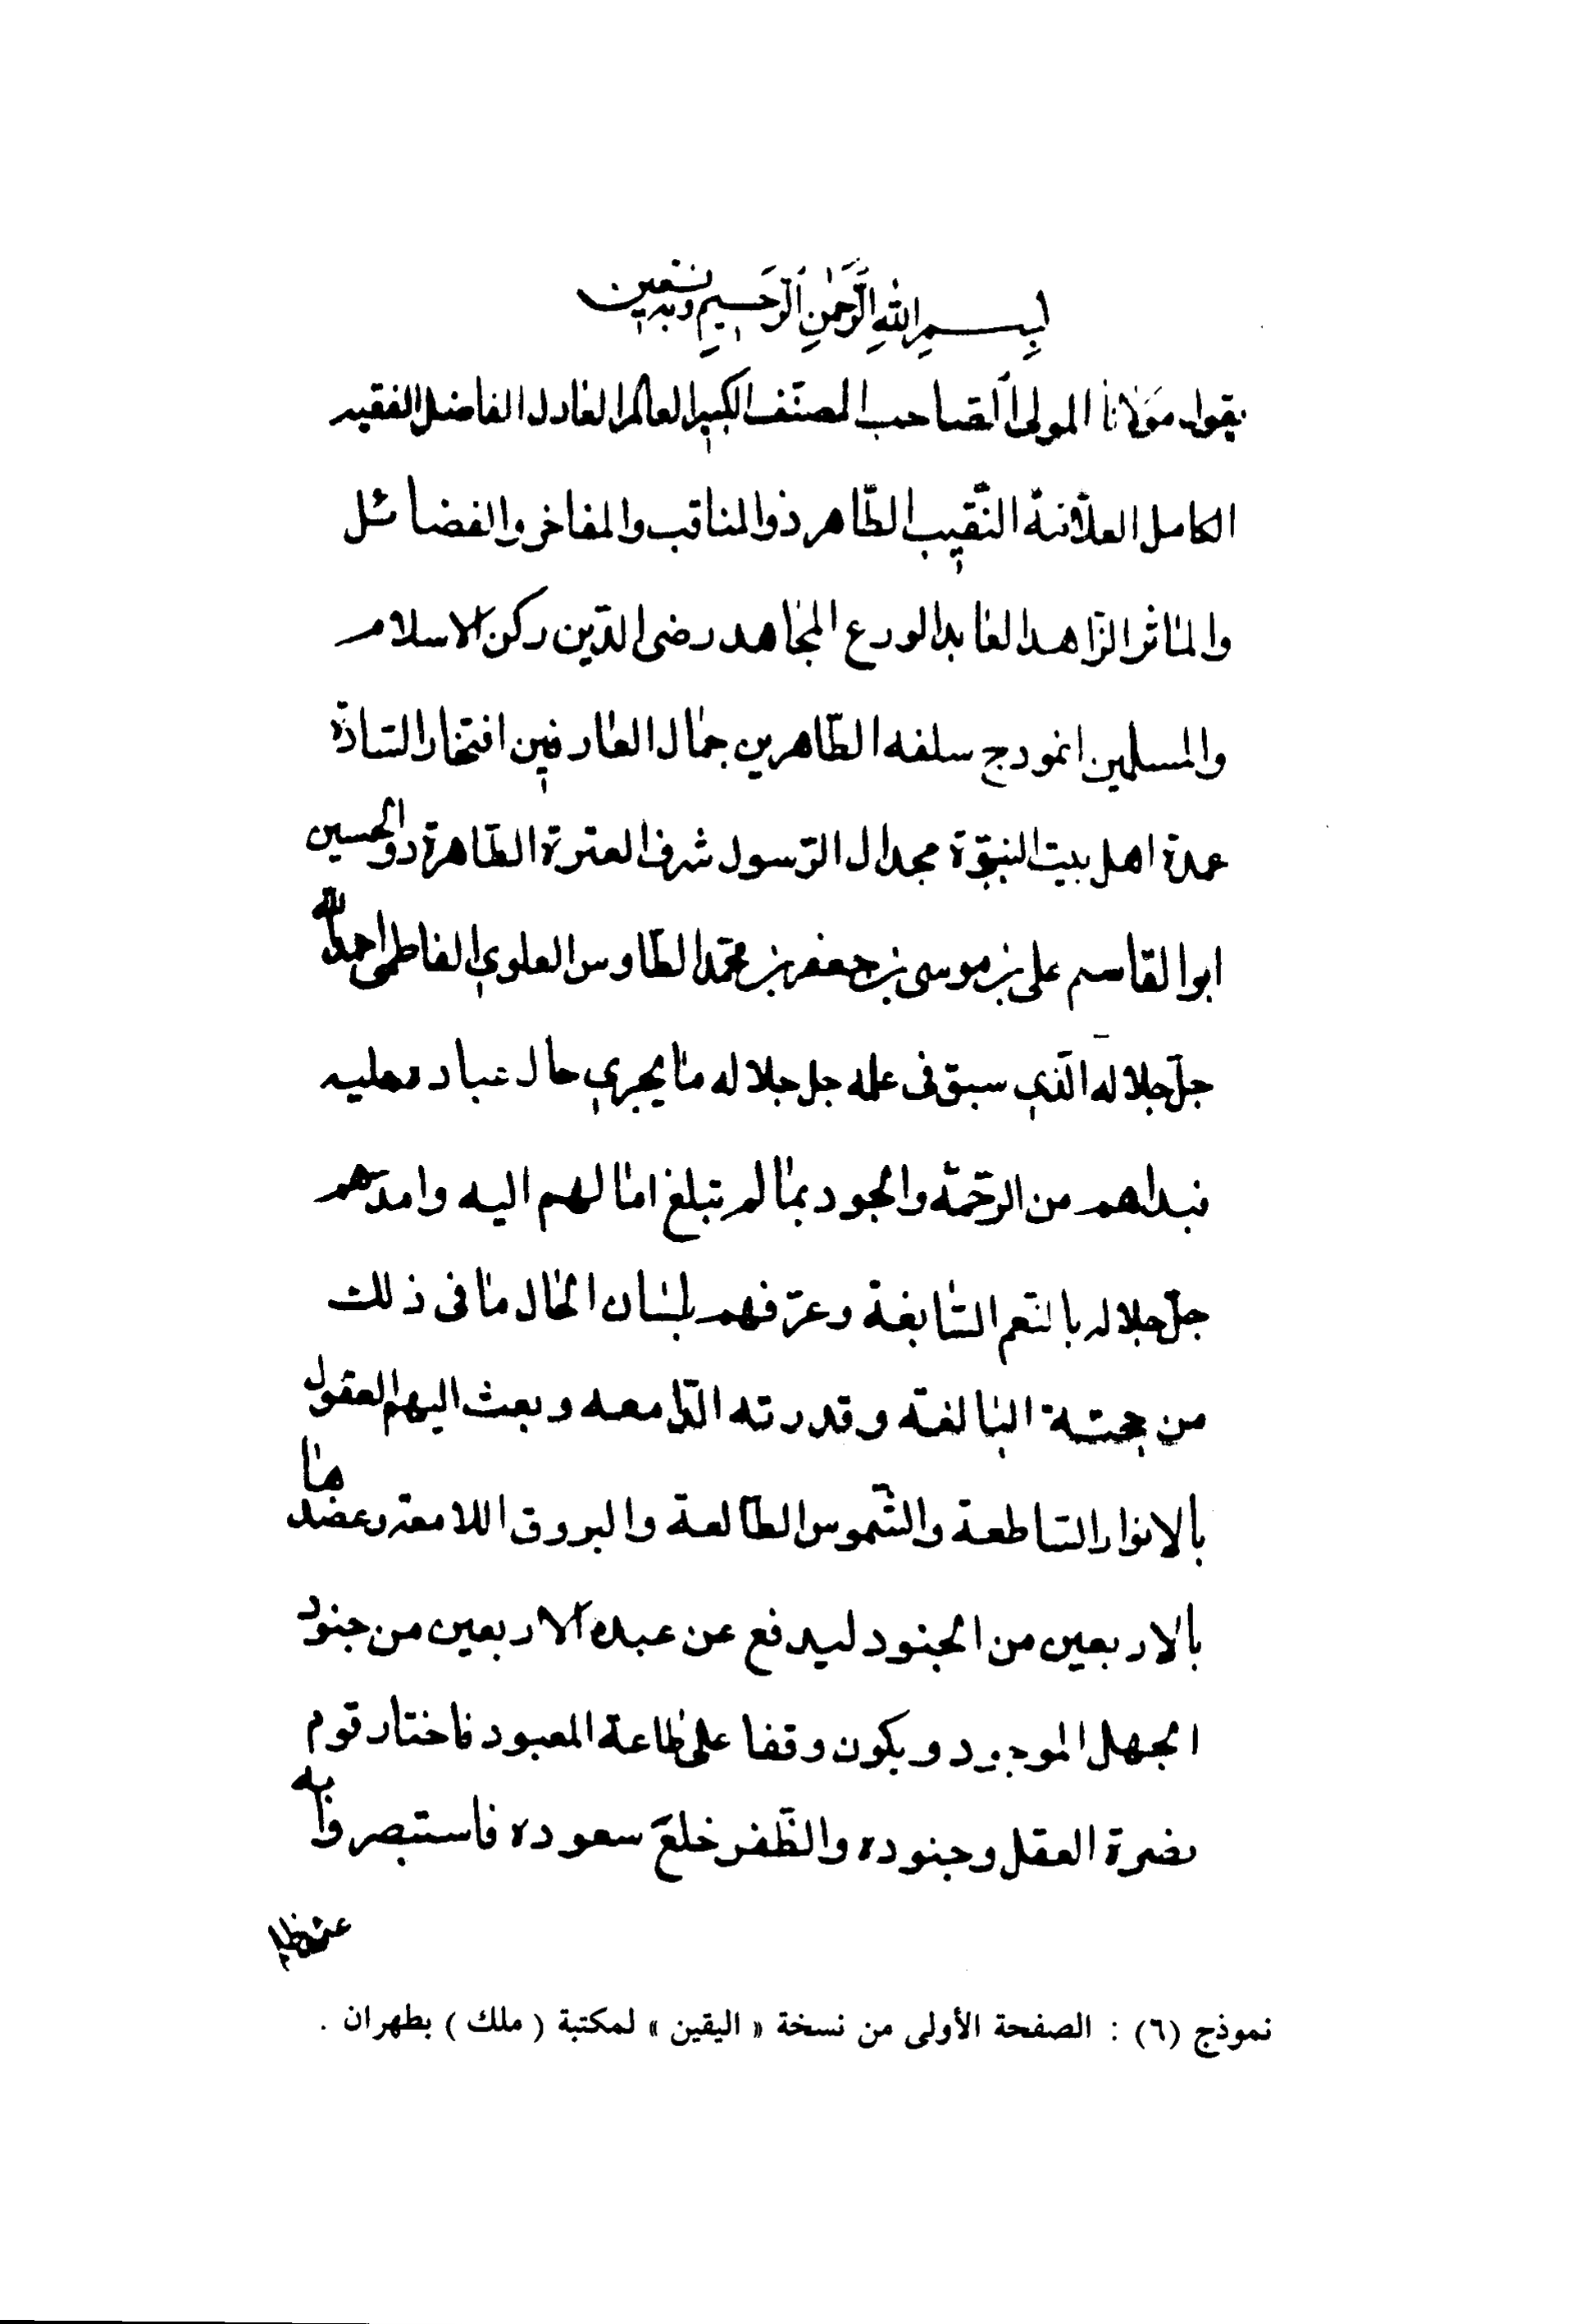 بسم الله الرحمن الرحيم وبه نستعين
يقول مولانا المولى الصاحب المصنف الكبير العالم العادل الفاضل الفقيه
الكامل العلامة النقيب الطاهر ذو المناقب والمفاخر والفضائل
والمآثر الزاهد العابد الورع المجاهد رضى الدين ركن الاسلام
والمسلمين انموذج سلفه الطاهرين جمال العارفين افتخار السادة
عمدة اهل بيت النبوة مجد ال الرسول شرف العترة الطاهرة ذو الحسبين
ابو القاسم على بن موسى بن جعفر بن محمد الطاوس العلوي الفاطمى احمد الله
جل جلاله الذي سبق فى علمه جل جلاله ما يجري حال عباده عليه
فبداهم من الرحمة والجود بما لم تبلغ امالهم اليه وامدهم
جل جلاله بالنعم السابغة وعرفهم بلسان الحال ما فى ذلك
من حجته البالغة وقدرته الدامعه وبعث اليهم العقول
بالانوار الساطعة والشموس الطالعة والبروق اللامعة وعضدها
بالاربعين من الجنود ليدفع عن عبده الاربعين من جنود
الجهل الموجود ويكون وقفا على طاعة المعبود فاختار قوم
نصرة العقل وجنوده والظفر خلع سعوده فاستبصروا به
نموذج (٦) : الصفحة الأولى من نسخة « اليقين » لمكتبة ( ملك ) بطهران .